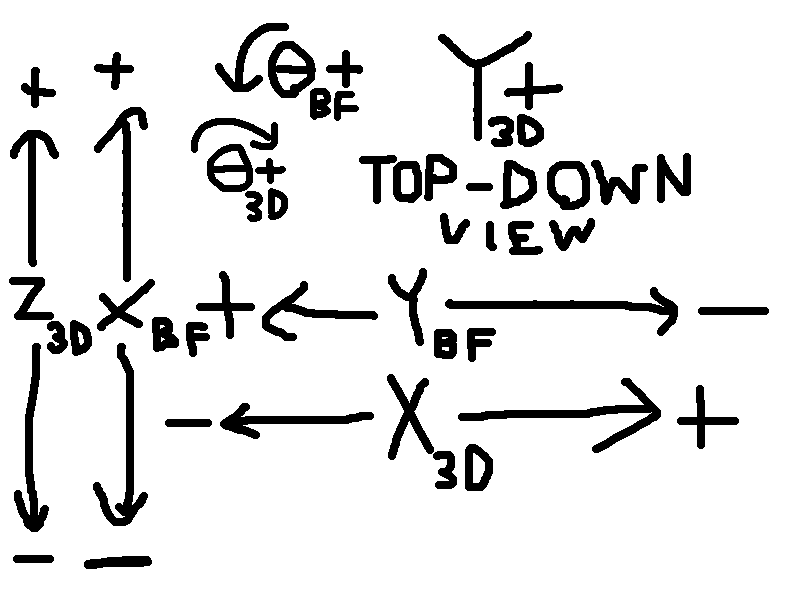 + + θBF+ Y3D+
θ3D+
TOP-DOWN
VIEW
Z3D XBF + YBF −
− X3D +
− −